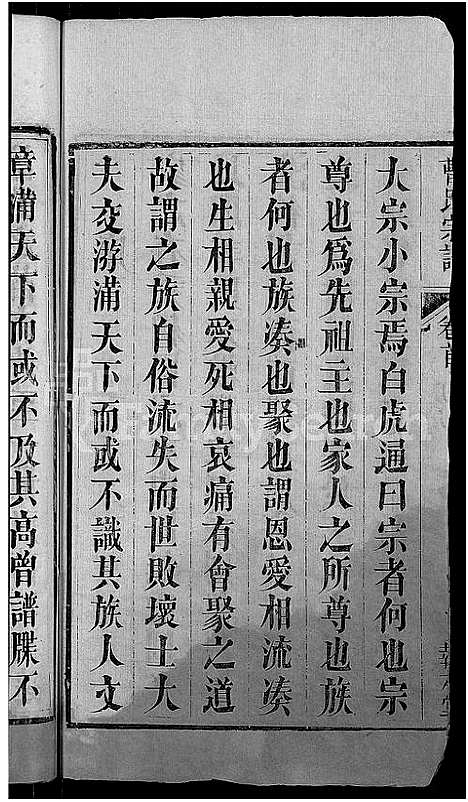 曾氏宗譜
卷首
大宗小宗焉白虎通曰宗者何也宗
尊也爲先祖主也家人之所尊也族
者何也族湊也聚也謂恩愛相流湊
也生相親愛死相哀痛有會聚之道
故謂之族自俗流失而世敗壞士大
夫交游滿天下而或不識其族人文
章滿天下而或不及其高曾譜牒不